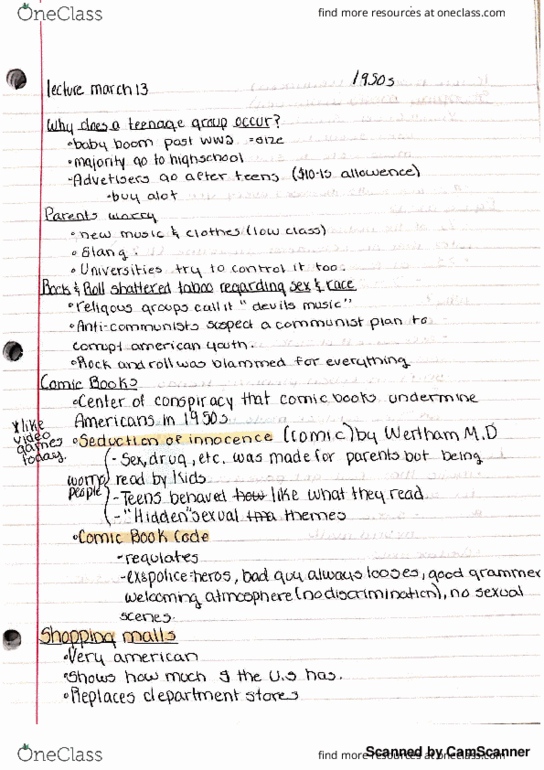 OneClass
find more resources at oneclass.com
lecture march 13
1950s
Why does a teenage group occur?
•baby boom post WW2 •size
•majority go to highschool
•Advetisers go after teens ($10-15 allowence)
•buy alot
Parents worry
•new music & clothes (low class)
•Slang.
•Universities try to control it too.
Rock & Roll shattered taboo regarding sex & race
•religous groups call it "devils music"
•Anti-communists suspect a communist plan to
corrupt american youth.
•Rock and roll was blammed for everything
Comic Books
•Center of conspiracy that comic books undermine
Americans in 1950s.
*like
video
games
today.
•Seduction of innocence (comic) by Wertham M.D
- Sex, drug, etc. was made for parents but being
read by kids
people
-Teens behaved how like what they read
-"Hidden" sexual themes
•Comic Book Code
-regulates
-police=heros, bad guy always looses, good grammer
welcoming atmosphere (no discrimination), no sexual
scenes.
Shopping malls
•Very american
•Shows how much $ the U.S has.
•Replaces department stores
OneClass
find more resources at oneclass.com
Scanned by CamScanner